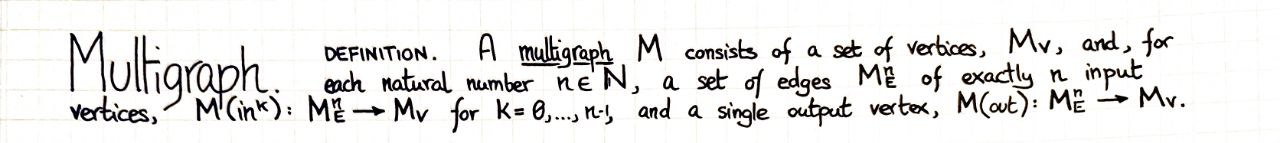 Multigraph. DEFINITION. A multigraph M consists of a set of vertices, Mv, and, for
each natural number n ∈ ℕ, a set of edges Mᴇⁿ of exactly n input
vertices, M(inᵏ): Mᴇⁿ → Mv for k = 0,..., n-1, and a single output vertex, M(out): Mᴇⁿ → Mv.